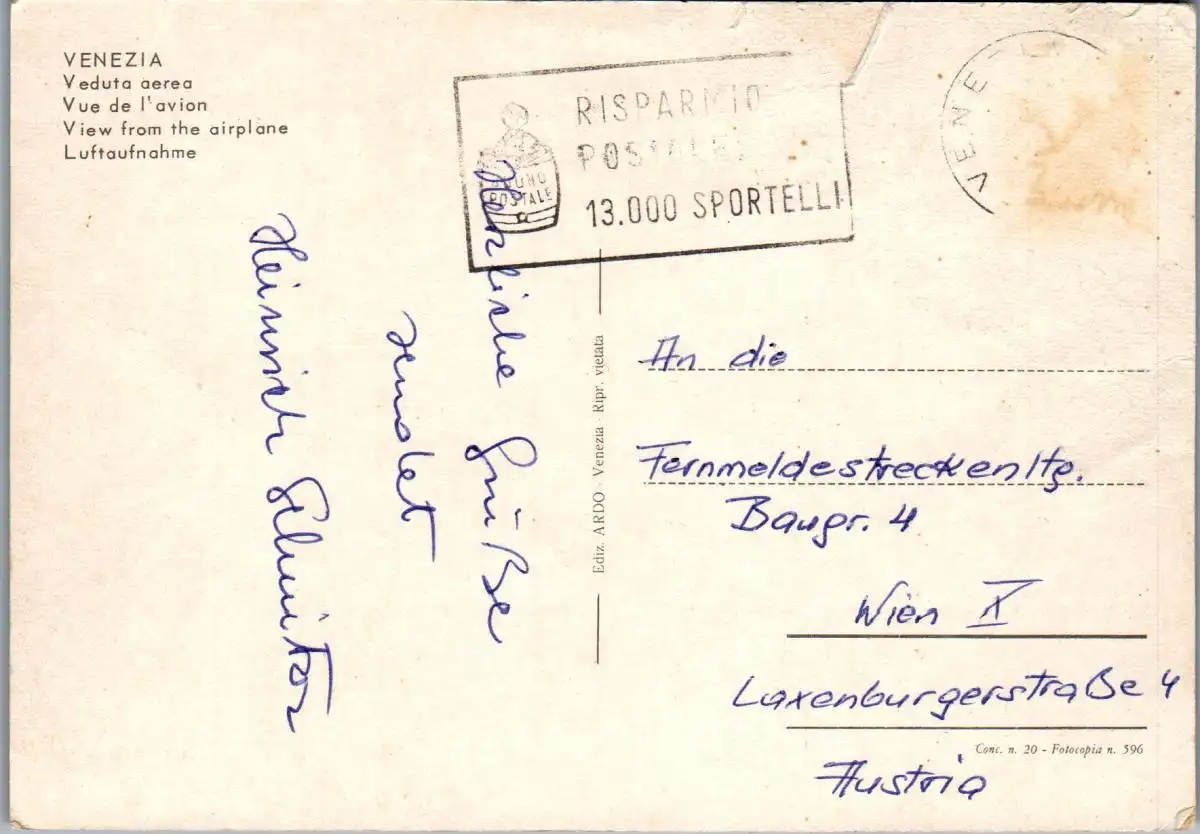 VENEZIA
Veduta aerea
Vue de l'avion
View from the airplane
Luftaufnahme
RISPARMIO
POSTALE:
13.000 SPORTELLI
BUONO
POSTALE
VENE
Herzliche Grüße
sendet
Heinrich
Ediz. ARDO - Venezia - Ripr. vietata
An die
Fernmeldestreckenltg.
Baugr. 4
Wien X
Laxenburgerstraße 4
Conc. n. 20 - Fotocopia n. 596
Austria